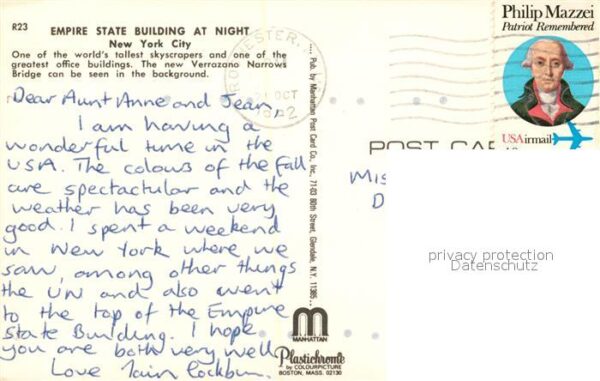 R23
EMPIRE STATE BUILDING AT NIGHT
New York City
One of the world's tallest skyscrapers and one of the
greatest office buildings. The new Verrazano Narrows
Bridge can be seen in the background.
Dear Aunt Anne and Jean,
I am having a
wonderful time in the
USA. The colours of the fall
are spectactular and the
weather has been very
good. I spent a weekend
in New York where we
saw, among other things
the UN and also went
to the top of the Empire
State Building. I hope
you are both very well
Love Iain Cockburn.
.... Pub. by Manhattan Post Card Co., Inc., 71-03 80th Street, Glendale, N.Y. 11385 ..
MANHATTAN
Plastichrome
by COLOURPICTURE
BOSTON, MASS. 02130
ROCHESTER,
OCT
Philip Mazzei
Patriot Remembered
USAirmail
POST CA
Mis
D
privacy protection
Datenschutz